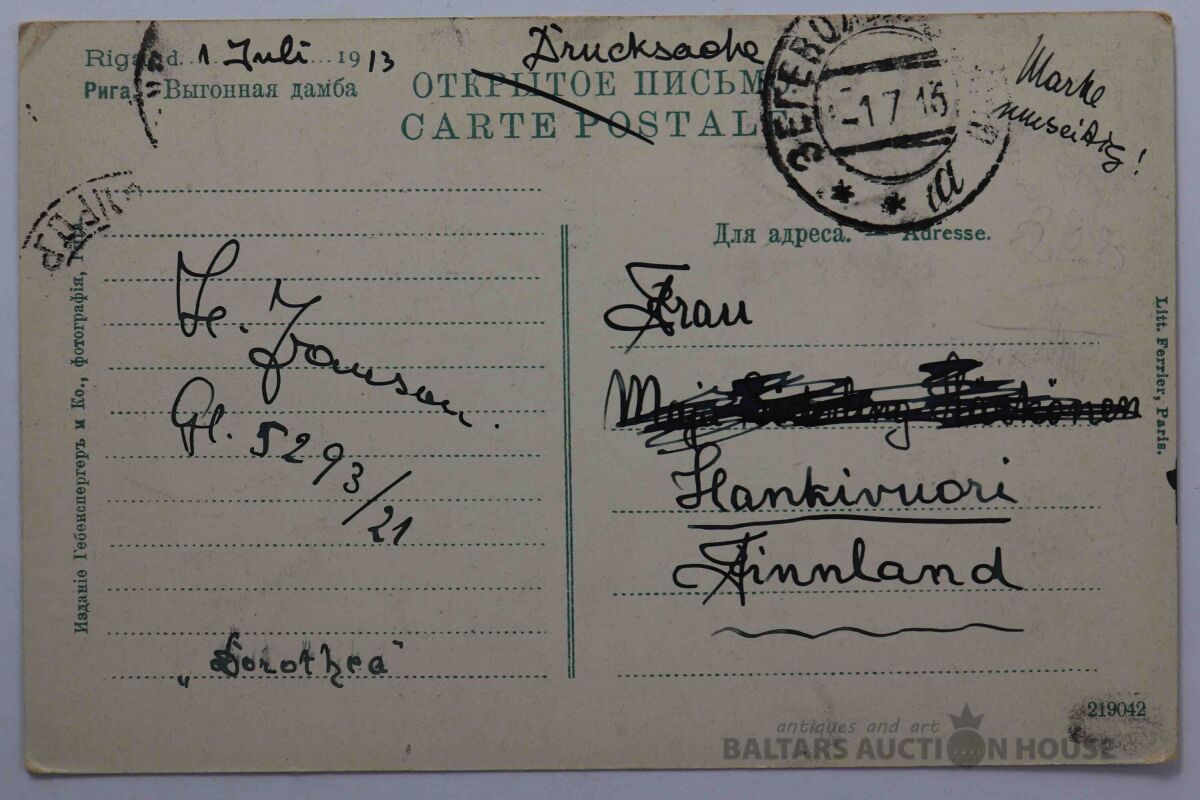 Riga d. 1 Juli 1913
Рига, Выгонная дамба
Drucksache
ОТКРЫТОЕ ПИСЬМО.
CARTE POSTALE
ЗЕГЕВОЛ
-1 7 13
Marke
umseitig!
Для адреса. — Adresse.
Frau
Hankivuori
Finnland
Gl. 5293/21
„Dorothea"
Изданіе Гебенспергеръ и Ко., фотографія,
Litt. Ferrier, Paris.
219042
antiques and art
BALTARS AUCTION HOUSE